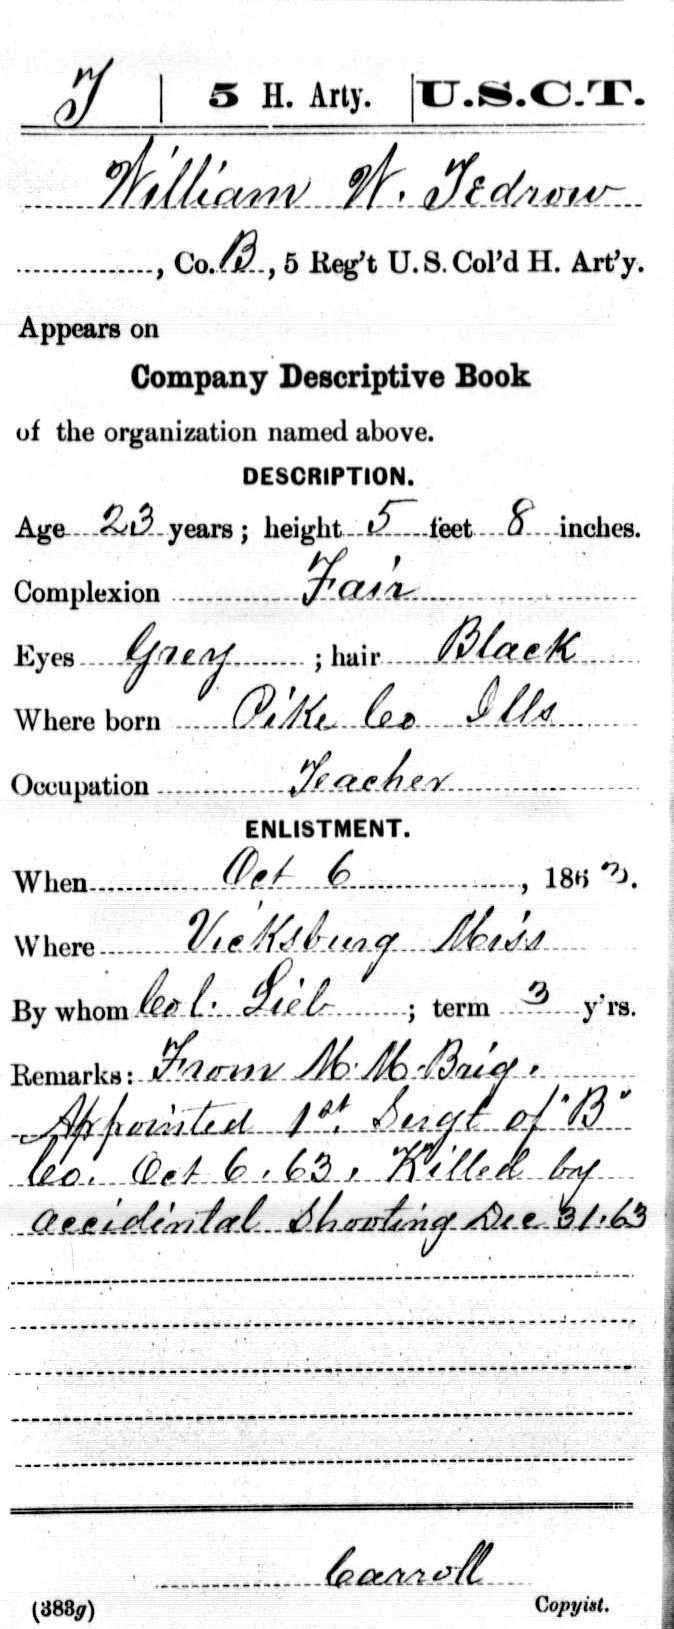 T | 5 H. Arty. | U.S.C.T.
William W. Tedrow
, Co. B, 5 Reg't U.S. Col'd H. Art'y.
Appears on
Company Descriptive Book
of the organization named above.
DESCRIPTION.
Age 23 years; height 5 feet 8 inches.
Complexion Fair
Eyes Grey ; hair Black
Where born Pike Co Ills
Occupation Teacher
ENLISTMENT.
When Oct 6, 1863.
Where Vicksburg Miss
By whom Col. Lieb ; term 3 y'rs.
Remarks: From M. M. Brig.
Appointed 1st. Sergt of "B"
Co. Oct 6. 63. Killed by
accidintal shooting Dec 31. 63
Carroll
(383g) Copyist.